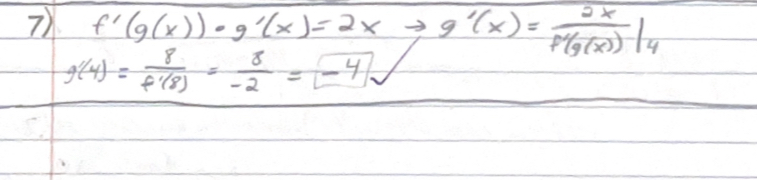 7) f'(g(x)) • g'(x) = 2x → g'(x) = 2x / f'(g(x)) |4
g'(4) = 8 / f'(8) = 8 / -2 = -4 ✓